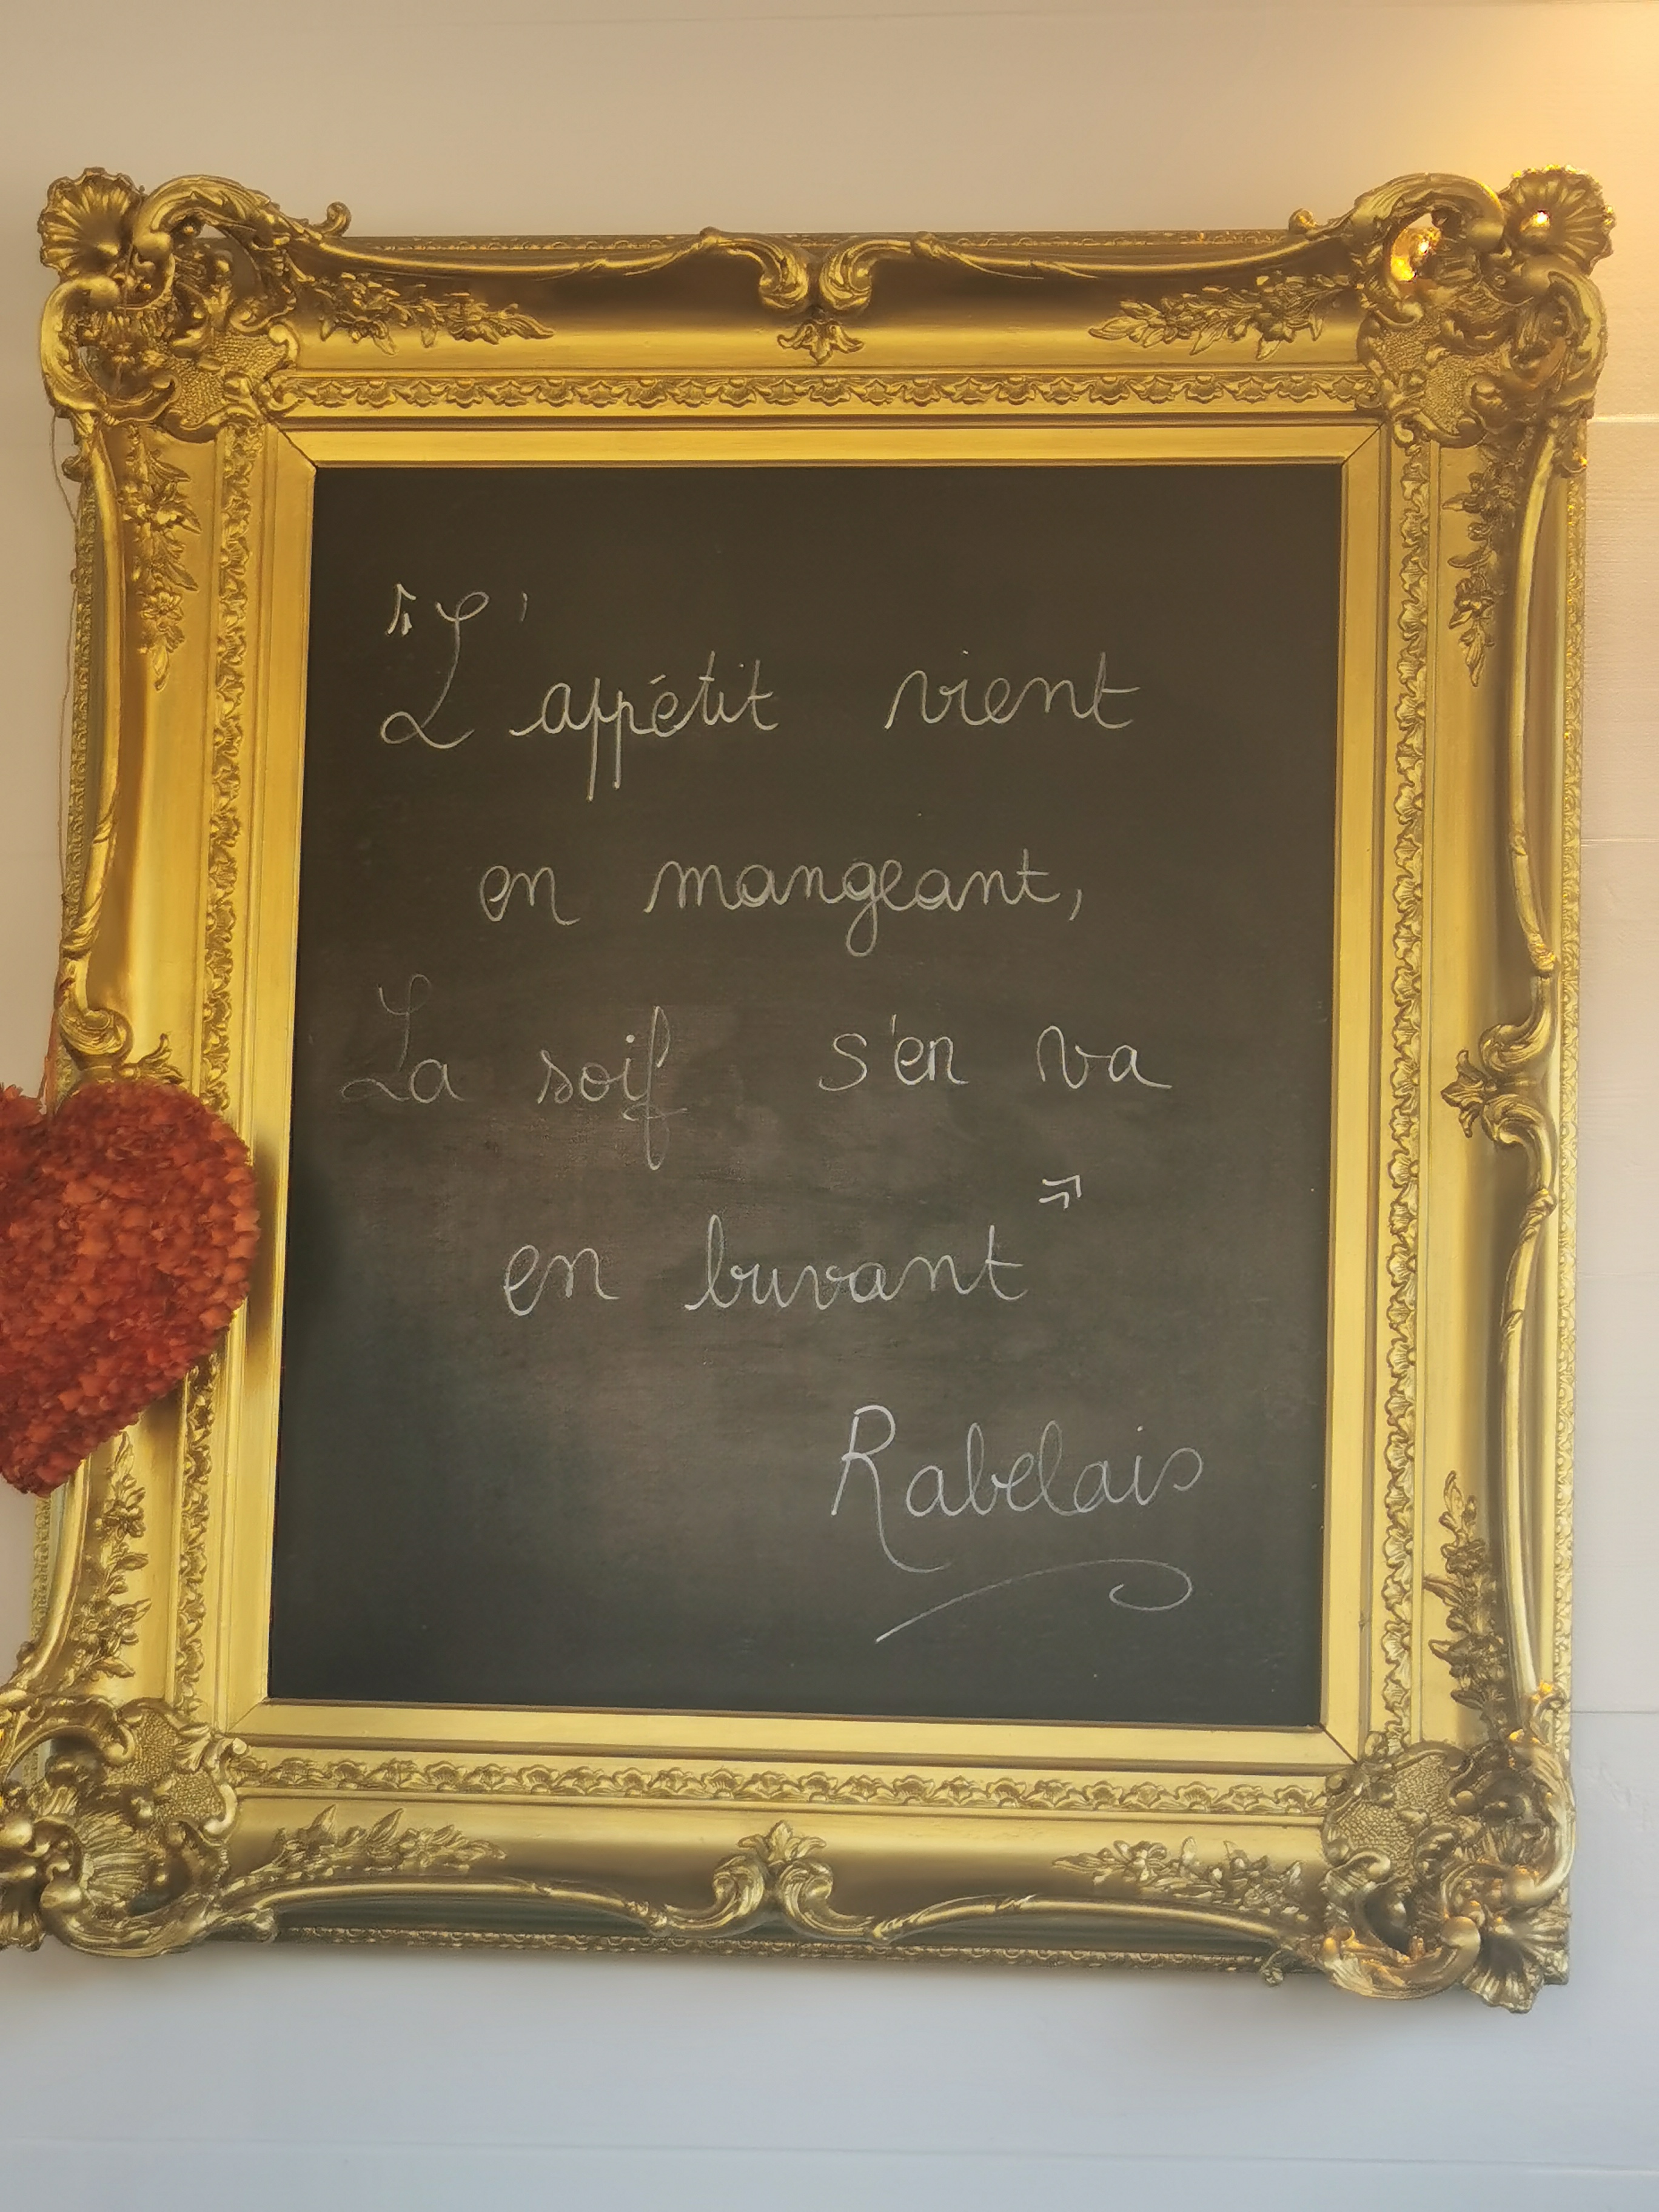 « L'appétit vient
en mangeant,
La soif s'en va
en buvant »
Rabelais